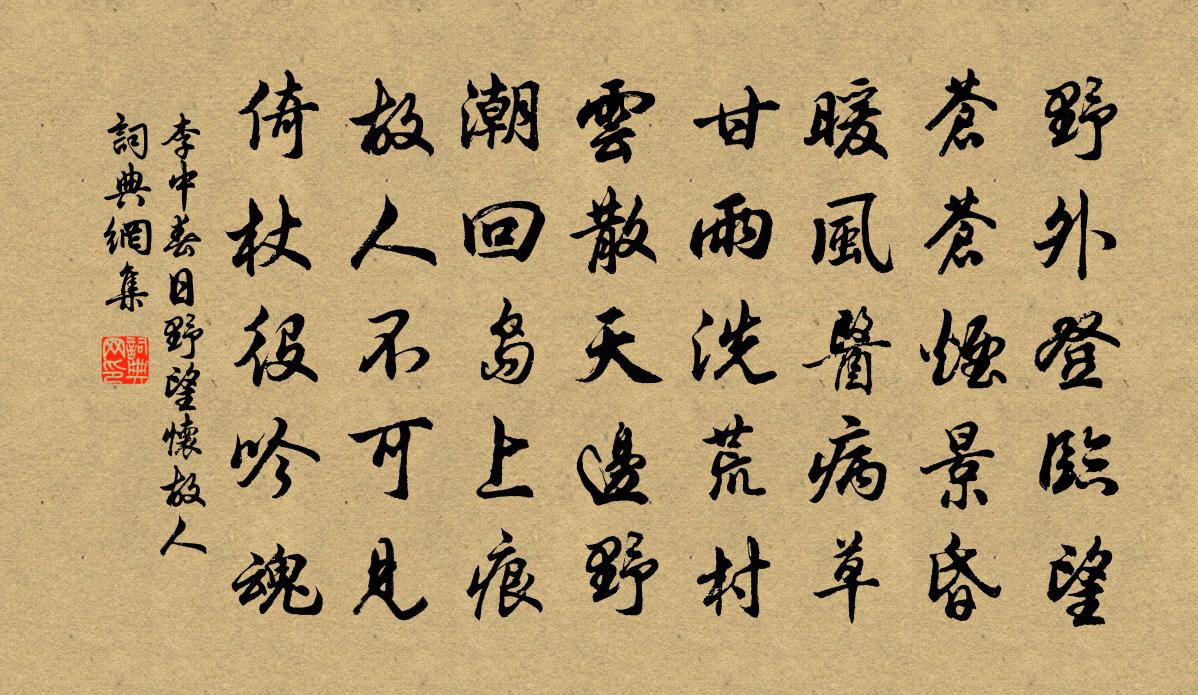 野外登臨望
蒼蒼煙景昏
暖風醫病草
甘雨洗荒村
雲散天邊野
潮回島上痕
故人不可見
倚杖役吟魂
李中春日野望懷故人
詞典網集
詞典网印